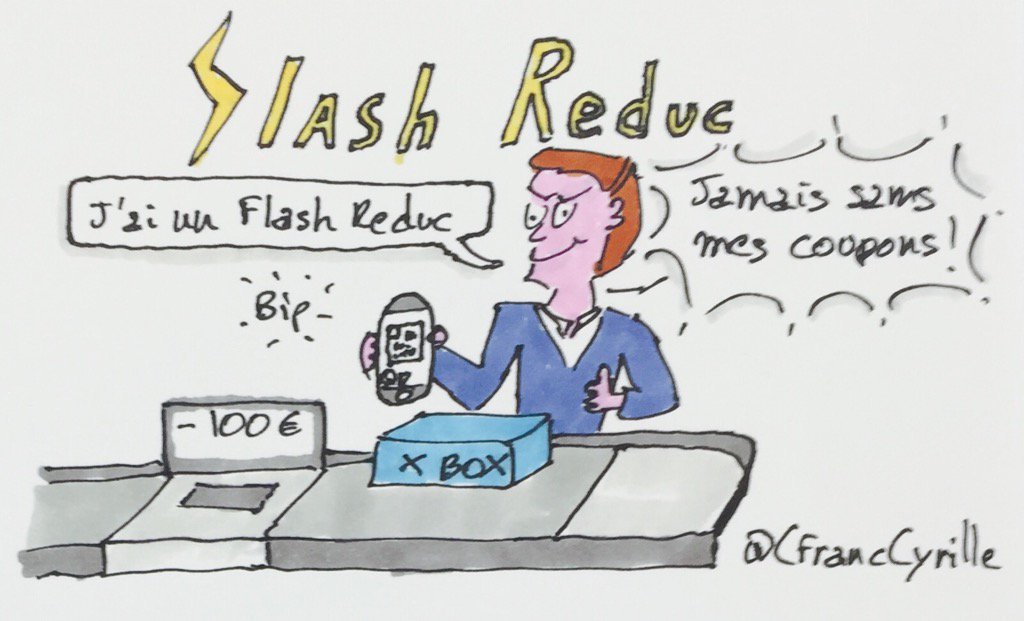 Slash Reduc
J'ai un Flash Reduc
Jamais sans
mes coupons!
Bip
-100€
X BOX
@CfrancCyrille